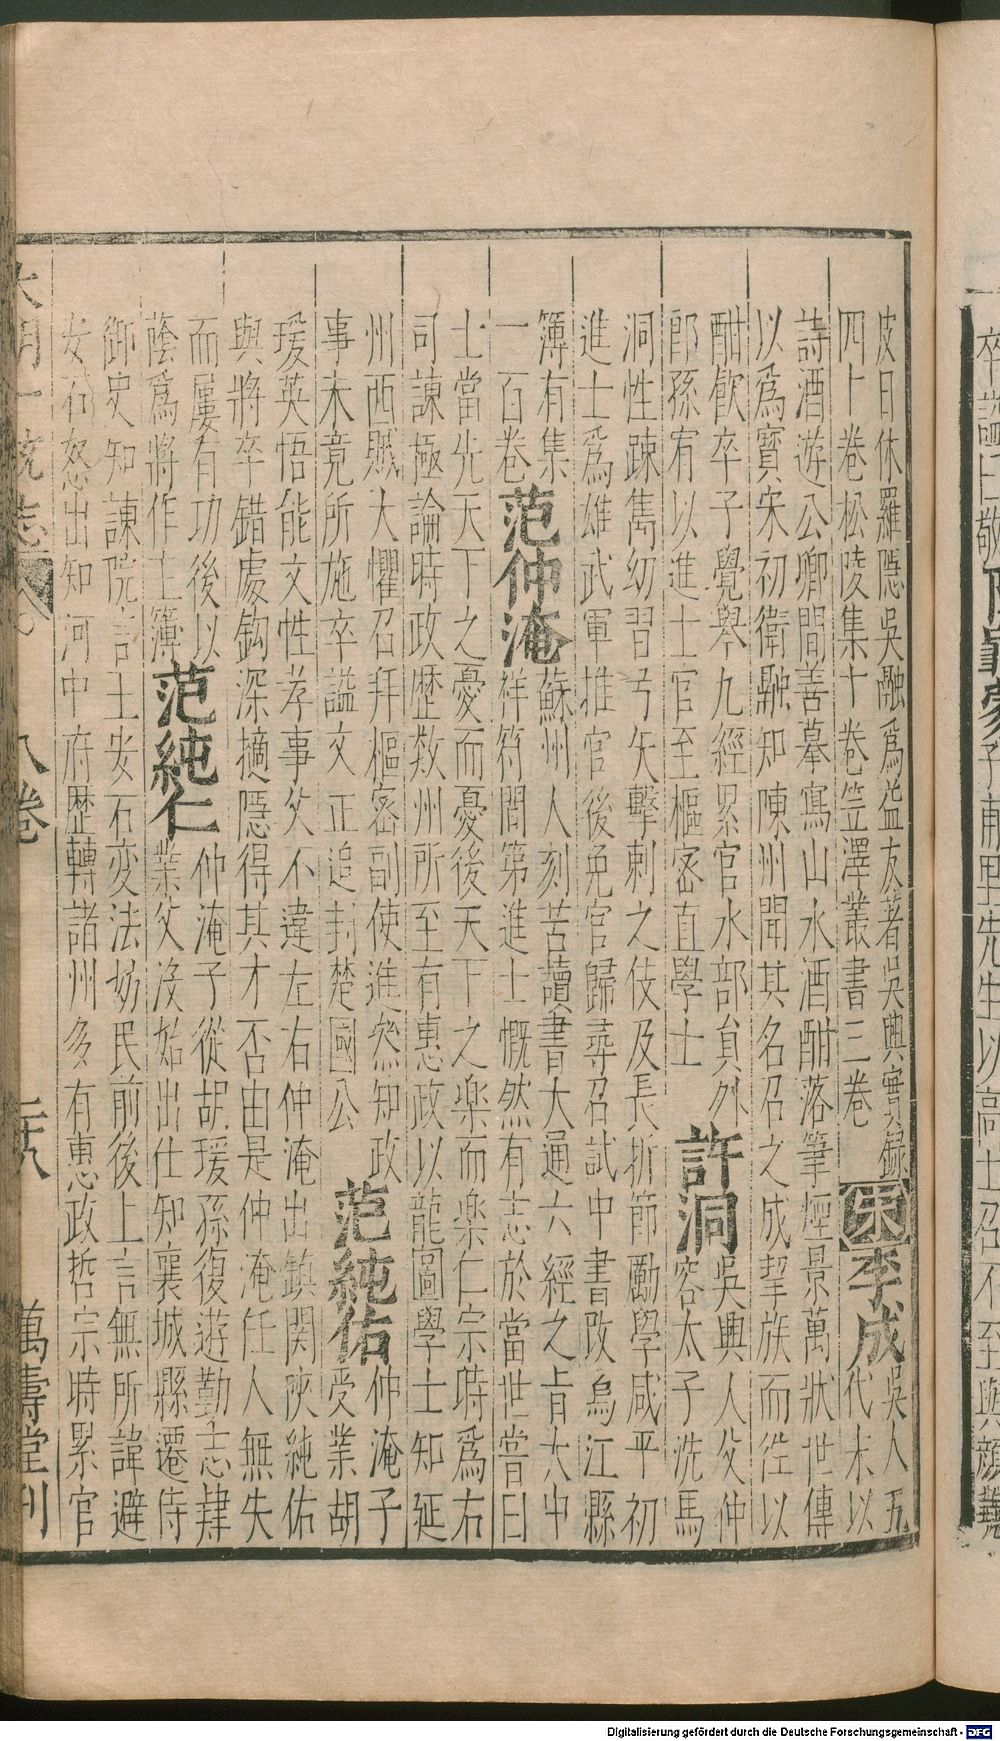 卒謚曰敬
甫里先生以高士召不至與顔蕘
皮日休羅隱吳融爲益友著吳興實録
四十卷松陵集十卷笠澤叢書三卷
宋李成
吳人五
代末以
詩酒遊公卿間善摹寫山水酒酣落筆煙景萬狀世傳
以爲寳宋初衛融知陳州聞其名召之成挈族而徃以
酣飲卒子覺舉九經累官水部貟外
郎孫宥以進士官至樞宻直學士
許洞
吳興人父仲
容太子洗馬
洞性踈雋幼習弓矢擊刺之伎及長折節勵學咸平初
進士爲雄武軍推官後免官歸尋召試中書改烏江縣
簿有集
一百卷
范仲淹
蘇州人刻苦讀書大通六經之㫖大中
祥符間第進士慨然有志於當世嘗曰
士當先天下之憂而憂後天下之楽而楽仁宗時爲右
司諫極論時政歴敎州所至有惠政以龍圖學士知延
州西賊大懼召拜樞宻副使進叅知政
事未竟所施卒謚文正追封楚國公
范純佑
仲淹子
受業胡
瑗英悟能文性孝事父不違左右仲淹出鎮関陜純佑
與將卒錯處鈎深擿隠得其才否由是仲淹任人無失
而屢有功後以
蔭爲將作主簿
范純仁
仲淹子從胡瑗孫復遊勤士志肄
業父没始出仕知襄城縣遷侍
御史知諫院言王安石変法妨民前後上言無所諱避
安石怒出知河中府歴轉諸州多有惠政哲宗時累官
大明一統志
八卷
二十八
萬壽堂刊
Digitalisierung gefördert durch die Deutsche Forschungsgemeinschaft - DFG